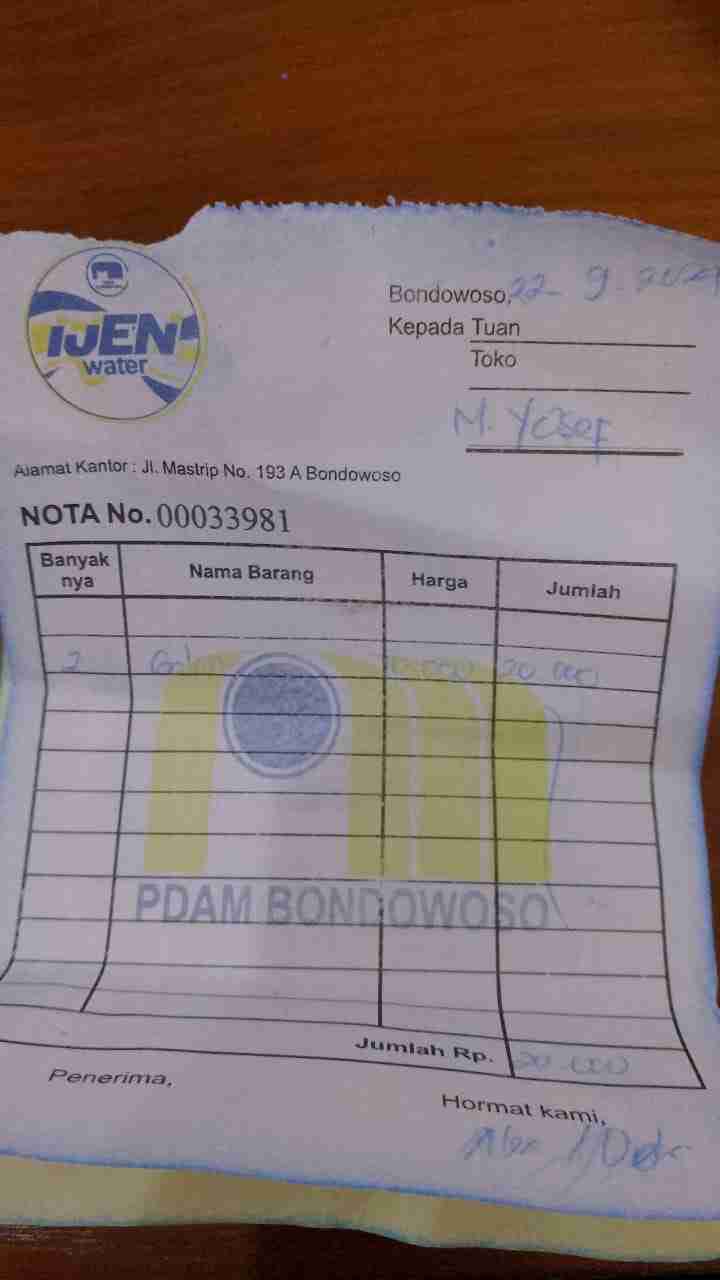 IJEN
water
Bondowoso, 22 - 9 . 202
Kepada Tuan
Toko
M. Yosef
Alamat Kantor : Jl. Mastrip No. 193 A Bondowoso
NOTA No. 00033981
Banyak nya Nama Barang Harga Jumlah
2 Galon 10.000 20.000
PDAM BONDOWOSO
Jumlah Rp. 20.000
Penerima,
Hormat kami,